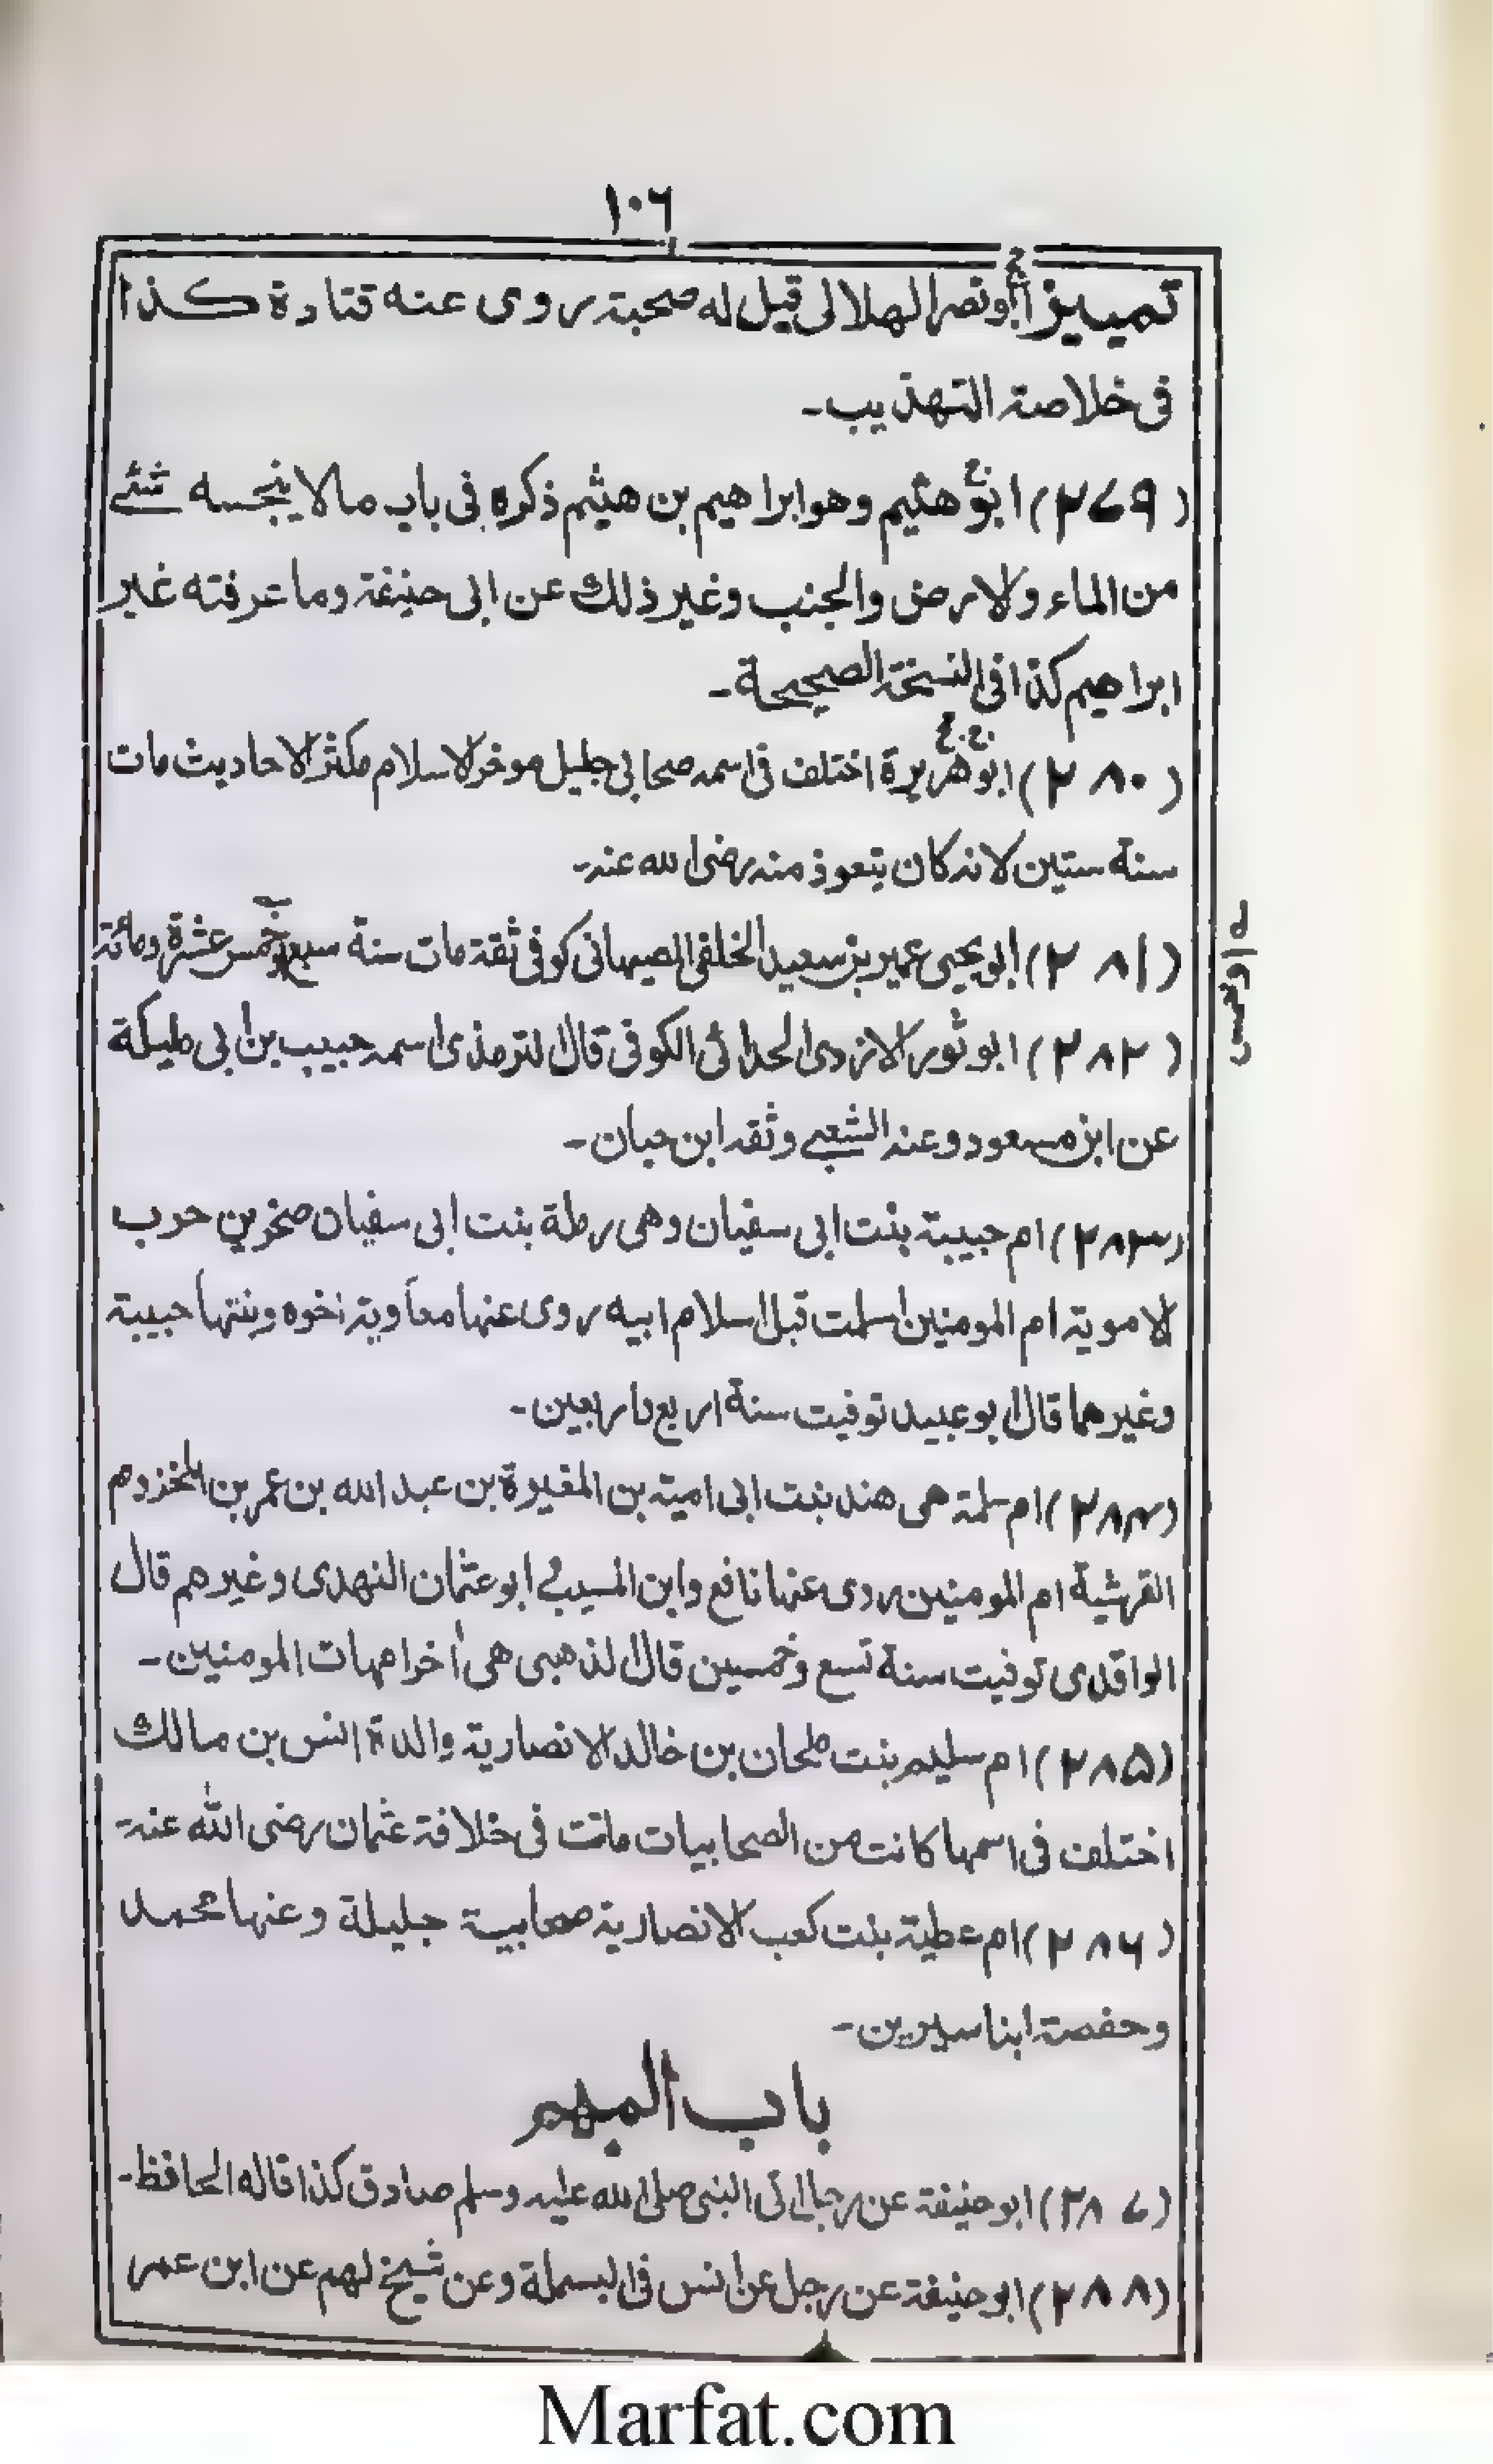 ١٠٦
تمييز أبو نصر الهلالى قيل له صحبة روى عنه قتادة كذا
فى خلاصة التهذيب۔
(٢٧٩) ابو هثيم وهو ابراهيم بن هيثم ذكره فى باب ما لا ينجسه شئے
من الماء ولارض والجنب وغير ذلك عن ابى حنيفة وما عرفته غير
ابراهيم كذا فى النسخة الصحيحة۔
(٢٨٠) ابو هريرة اختلف فى اسمه صحابى جليل موخر الاسلام مكثر الاحاديث مات
سنة ستين لانه كان يتعوذ منه رضى الله عنه۔
(٢٨١) ابو يحيى عمير بن سعيد الخلفى الصيهانى كوفى ثقة مات سنة سبع خمس عشرة ومائة
(٢٨٢) ابو ثور الازدى الحدائى الكوفى قال الترمذى اسمه حبيب بن ابى مليكة
عن ابن مسعود وعنه الشعبے وثقه ابن حبان۔
(٢٨٣) ام حبيبة بنت ابى سفيان وهى رملة بنت ابى سفيان صخر بن حرب
الاموية ام المومنين اسلمت قبل اسلام ابيه روى عنها معاوية اخوه وبنتها حبيبة
وغيرهما قال ابو عبيد توفيت سنة اربع واربعين۔
(٢٨٤) ام سلمة هى هند بنت ابى امية بن المغيرة بن عبد الله بن عمر بن المخزوم
القرشية ام المومنين روى عنها نافع وابن المسيب ابو عثمان النهدى وغيرهم قال
الواقدى توفيت سنة تسع وخمسين قال الذهبى هى أخر امهات المومنين۔
(٢٨٥) ام سليم بنت ملحان بن خالد الانصارية والدة انس بن مالك
اختلف فى اسمها كانت من الصحابيات ماتت فى خلافة عثمان رضى الله عنه
(٢٨٦) ام عطية بنت كعب الانصارية صحابية جليلة وعنها محمد
وحفصة ابنا سيرين۔
باب المبهم
(٢٨٧) ابو حنيفة عن رجال الى النبى صلى الله عليه وسلم صادق كذا قاله الحافظ۔
(٢٨٨) ابو حنيفة عن رجل عن انس فى البسملة وعن شيخ لهم عن ابن عمر
Marfat.com